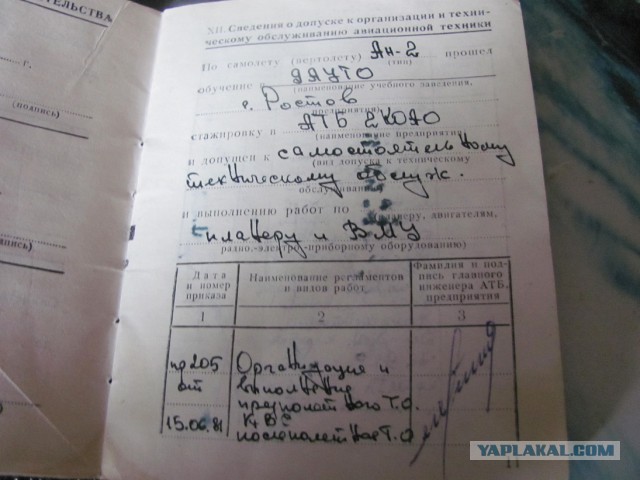 ТЕЛЬСТВА
г.
(подпись)
пись)
XII. Сведения о допуске к организации и техни-
ческому обслуживанию авиационной техники
По самолету (вертолету) Ан-2 прошел
(тип)
обучение в УАУТО
(наименование учебного заведения,
г. Ростов
предприятия)
стажировку в АТБ 2 КОАО
(наименование предприятия)
и допущен к самостоятельному
(вид допуска к техническому
техническому обслуж.
обслуживанию)
и выполнению работ по
(планеру, двигателям,
планеру и ВМУ
радио-электро-приборному оборудованию)
Дата и номер приказа
Наименование регламентов и видов работ
Фамилия и подпись главного инженера АТБ, предприятия
1 2 3
пр 205 Организация и
от выполнение
предполетного Т.О.
15.06.81 К-ВС
послеполетное Т.О
11
YAPLAKAL.COM